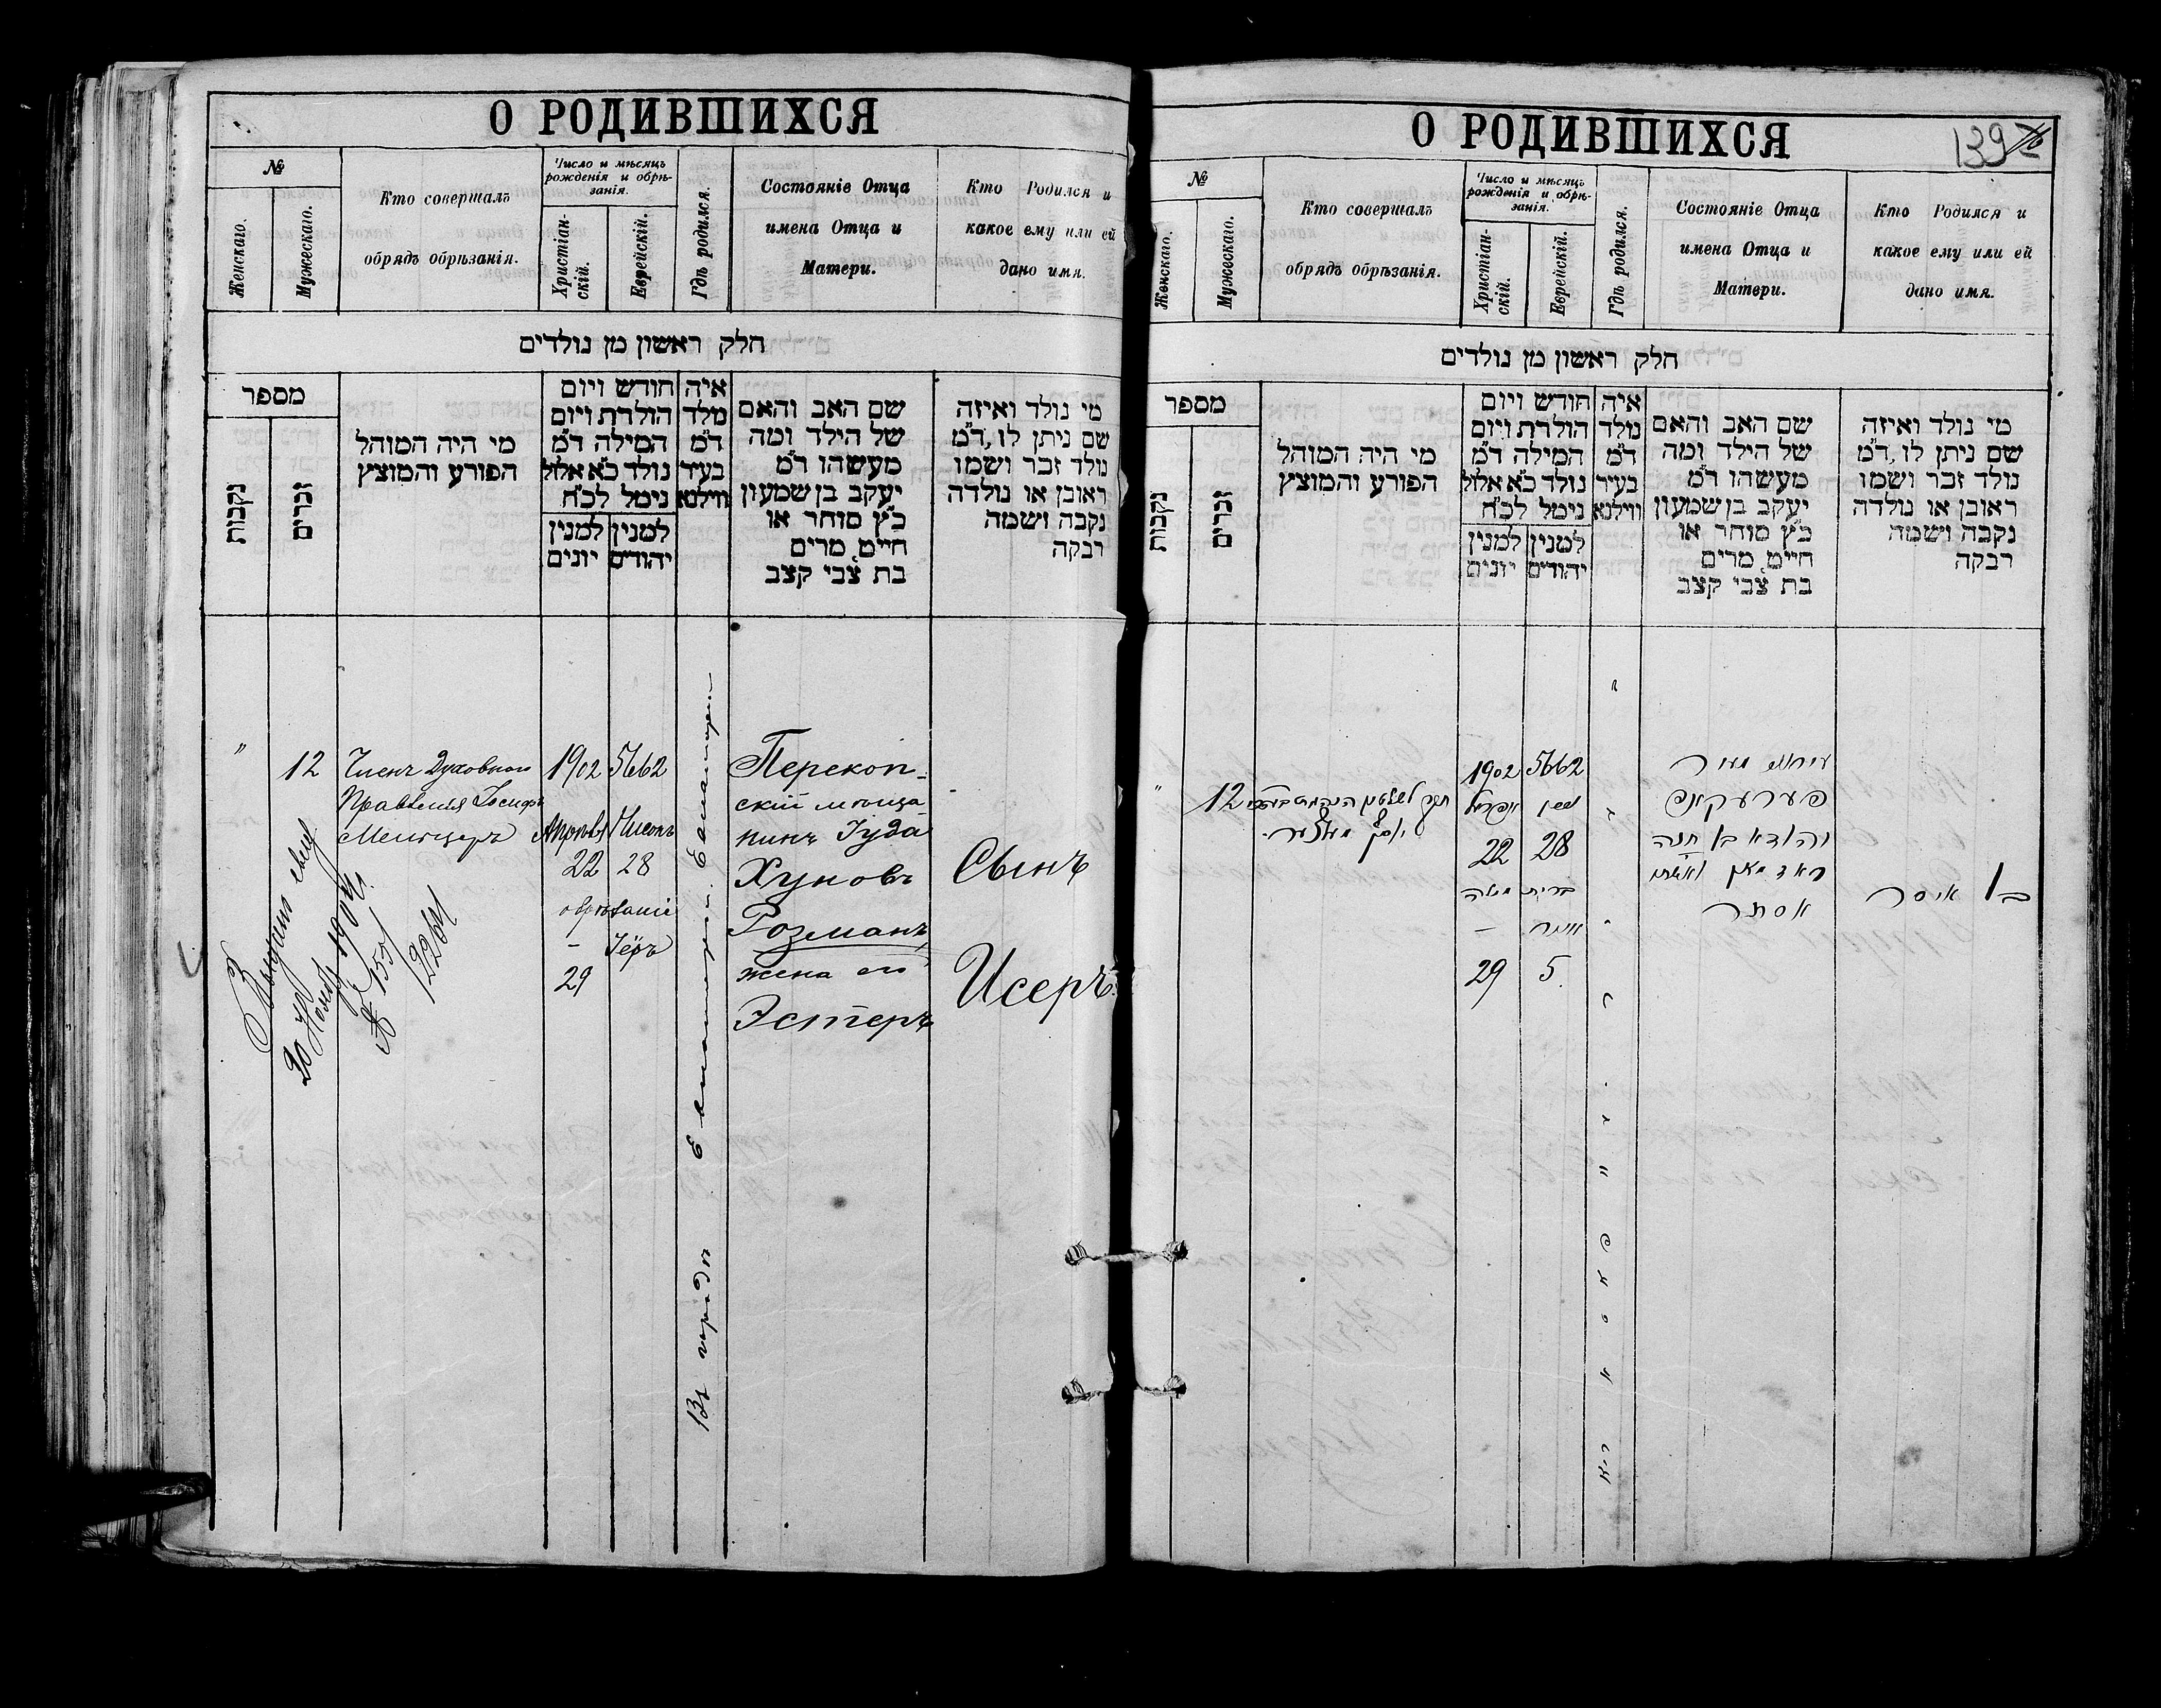 О РОДИВШИХСЯ
№
Женскаго.
Мужескаго.
Кто совершалъ
обрядъ обрѣзанія.
Число и мѣсяцъ
рожденія и обрѣ-
занія.
Христіан-
скій.
Еврейскій.
Гдѣ родился.
Состояніе Отца
имена Отца и
Матери.
Кто Родился и
какое ему или ей
дано имя.
חלק ראשון מן נולדים
מספר
נקבות
זכרים
מי היה המוהל
הפורע והמוצץ
חודש ויום
הולדת ויום
המילה ד״מ
נולד כ״א אלול
נימל לכ״ח
למנין יהודים
למנין יונים
איה
מלד
ד״מ
בעיר
ווילנא
שם האב והאם
של הילד ומה
מעשהו ד״מ
יעקב בן שמעון
כ״ץ סוחר או
חייט, מרים
בת צבי קצב
מי נולד ואיזה
שם ניתן לו, ד״מ
נולד זכר ושמו
ראובן או נולדה
נקבה ושמה
רבקה
"
12
Членъ Духовнаго
Правленія Іосифъ
Мельцеръ
1902
Апрѣля
22
обрѣзаніе
-
29
5662
Нисонъ
28
Іёръ
Въ городѣ
Перекоп-
скій мѣща
нинъ Іуда
Хуновъ
Розманъ,
жена его
Эстеръ
Сынъ
Исеръ
20
№ 155
О РОДИВШИХСЯ
139
№
Женскаго.
Мужескаго.
Кто совершалъ
обрядъ обрѣзанія.
Число и мѣсяцъ
рожденія и обрѣ-
занія.
Христіан-
скій.
Еврейскій.
Гдѣ родился.
Состояніе Отца
имена Отца и
Матери.
Кто Родился и
какое ему или ей
дано имя.
חלק ראשון מן נולדים
מספר
נקבות
זכרים
מי היה המוהל
הפורע והמוצץ
חודש ויום
הולדת ויום
המילה ד״מ
נולד כ״א אלול
נימל לכ״ח
למנין יהודים
למנין יונים
איה
מלד
ד״מ
בעיר
ווילנא
שם האב והאם
של הילד ומה
מעשהו ד״מ
יעקב בן שמעון
כ״ץ סוחר או
חייט, מרים
בת צבי קצב
מי נולד ואיזה
שם ניתן לו, ד״מ
נולד זכר ושמו
ראובן או נולדה
נקבה ושמה
רבקה
"
12
יוסף מעלצער
1902
אפריל
22
-
29
5662
ניסן
28
ברית מילה
אייר
5
פערעקאפ
יהודא בן חנה
ראזמאן ואשתו
אסתר
בן איסר